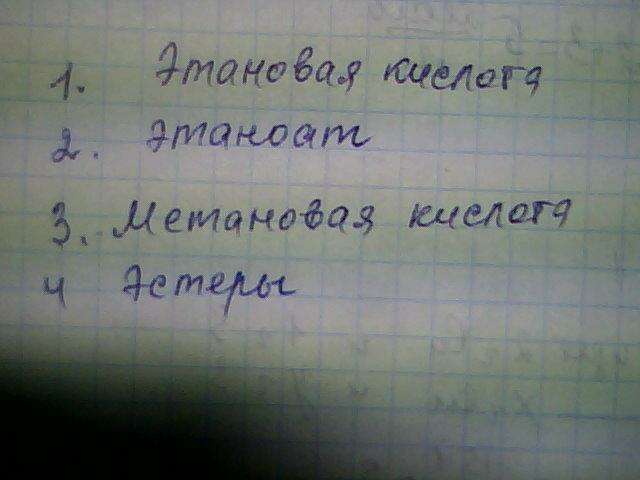 1. Этановая кислота
2. Этаноат
3. Метановая кислота
4 Эстеры